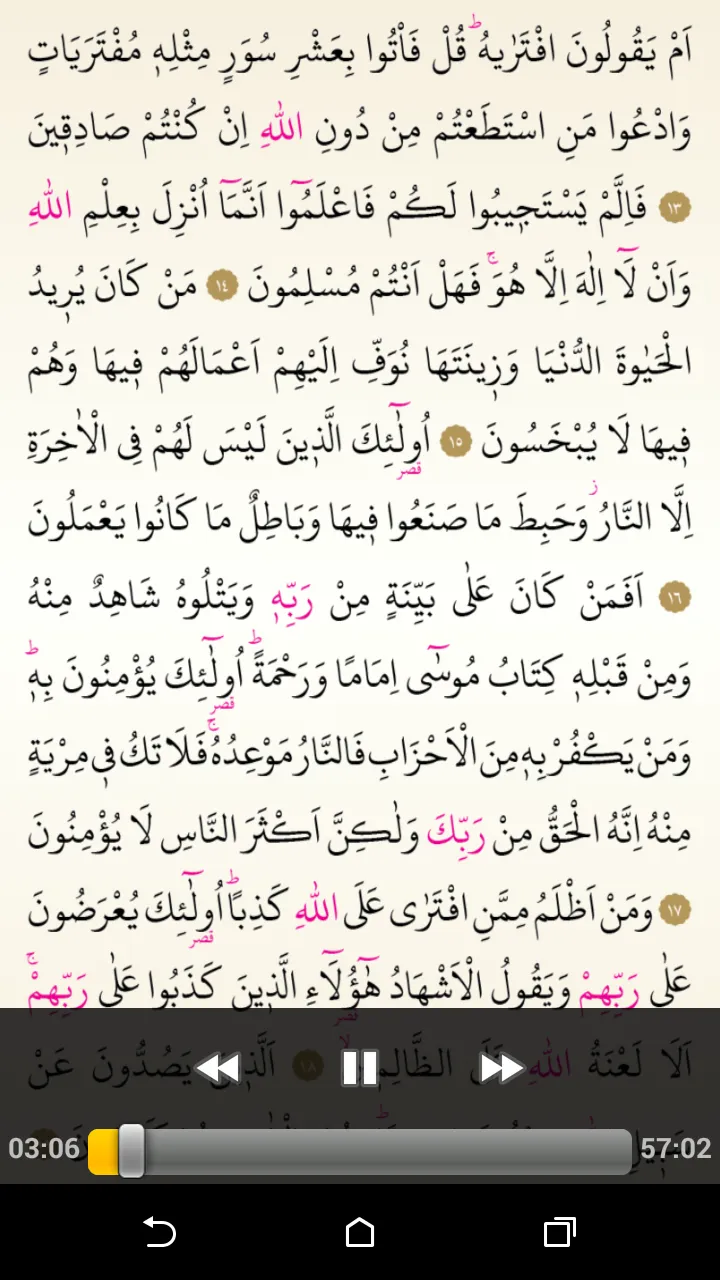 اَمْ يَقُولُونَ افْتَرٰيهُۜ قُلْ فَأْتُوا بِعَشْرِ سُوَرٍ مِثْلِه۪ مُفْتَرَيَاتٍ
وَادْعُوا مَنِ اسْتَطَعْتُمْ مِنْ دُونِ اللّٰهِ اِنْ كُنْتُمْ صَادِق۪ينَ
١٣ فَاِلَّمْ يَسْتَج۪يبُوا لَكُمْ فَاعْلَمُٓوا اَنَّمَٓا اُنْزِلَ بِعِلْمِ اللّٰهِ
وَاَنْ لَٓا اِلٰهَ اِلَّا هُوَۚ فَهَلْ اَنْتُمْ مُسْلِمُونَ ١٤ مَنْ كَانَ يُر۪يدُ
الْحَيٰوةَ الدُّنْيَا وَز۪ينَتَهَا نُوَفِّ اِلَيْهِمْ اَعْمَالَهُمْ ف۪يهَا وَهُمْ
ف۪يهَا لَا يُبْخَسُونَ ١٥ اُو۬لٰٓئِكَ الَّذ۪ينَ لَيْسَ لَهُمْ فِي الْاٰخِرَةِ
قصر
اِلَّا النَّارُۘ وَحَبِطَ مَا صَنَعُوا ف۪يهَا وَبَاطِلٌ مَا كَانُوا يَعْمَلُونَ
١٦ اَفَمَنْ كَانَ عَلٰى بَيِّنَةٍ مِنْ رَبِّه۪ وَيَتْلُوهُ شَاهِدٌ مِنْهُ
وَمِنْ قَبْلِه۪ كِتَابُ مُوسٰٓى اِمَامًا وَرَحْمَةًۜ اُو۬لٰٓئِكَ يُؤْمِنُونَ بِه۪ۜ
قصر
وَمَنْ يَكْفُرْ بِه۪ مِنَ الْاَحْزَابِ فَالنَّارُ مَوْعِدُهُۚ فَلَا تَكُ ف۪ي مِرْيَةٍ
مِنْهُ اِنَّهُ الْحَقُّ مِنْ رَبِّكَ وَلٰكِنَّ اَكْثَرَ النَّاسِ لَا يُؤْمِنُونَ
١٧ وَمَنْ اَظْلَمُ مِمَّنِ افْتَرٰى عَلَى اللّٰهِ كَذِبًاۜ اُو۬لٰٓئِكَ يُعْرَضُونَ
قصر
عَلٰى رَبِّهِمْ وَيَقُولُ الْاَشْهَادُ هٰٓؤُ۬لَٓاءِ الَّذ۪ينَ كَذَبُوا عَلٰى رَبِّهِمْۚ
قصر
اَلَا لَعْنَةُ اللّٰهِ الظَّالِم۪ ١٨ اَلَّذ۪ يَصُدُّونَ عَنْ
03:06 57:02